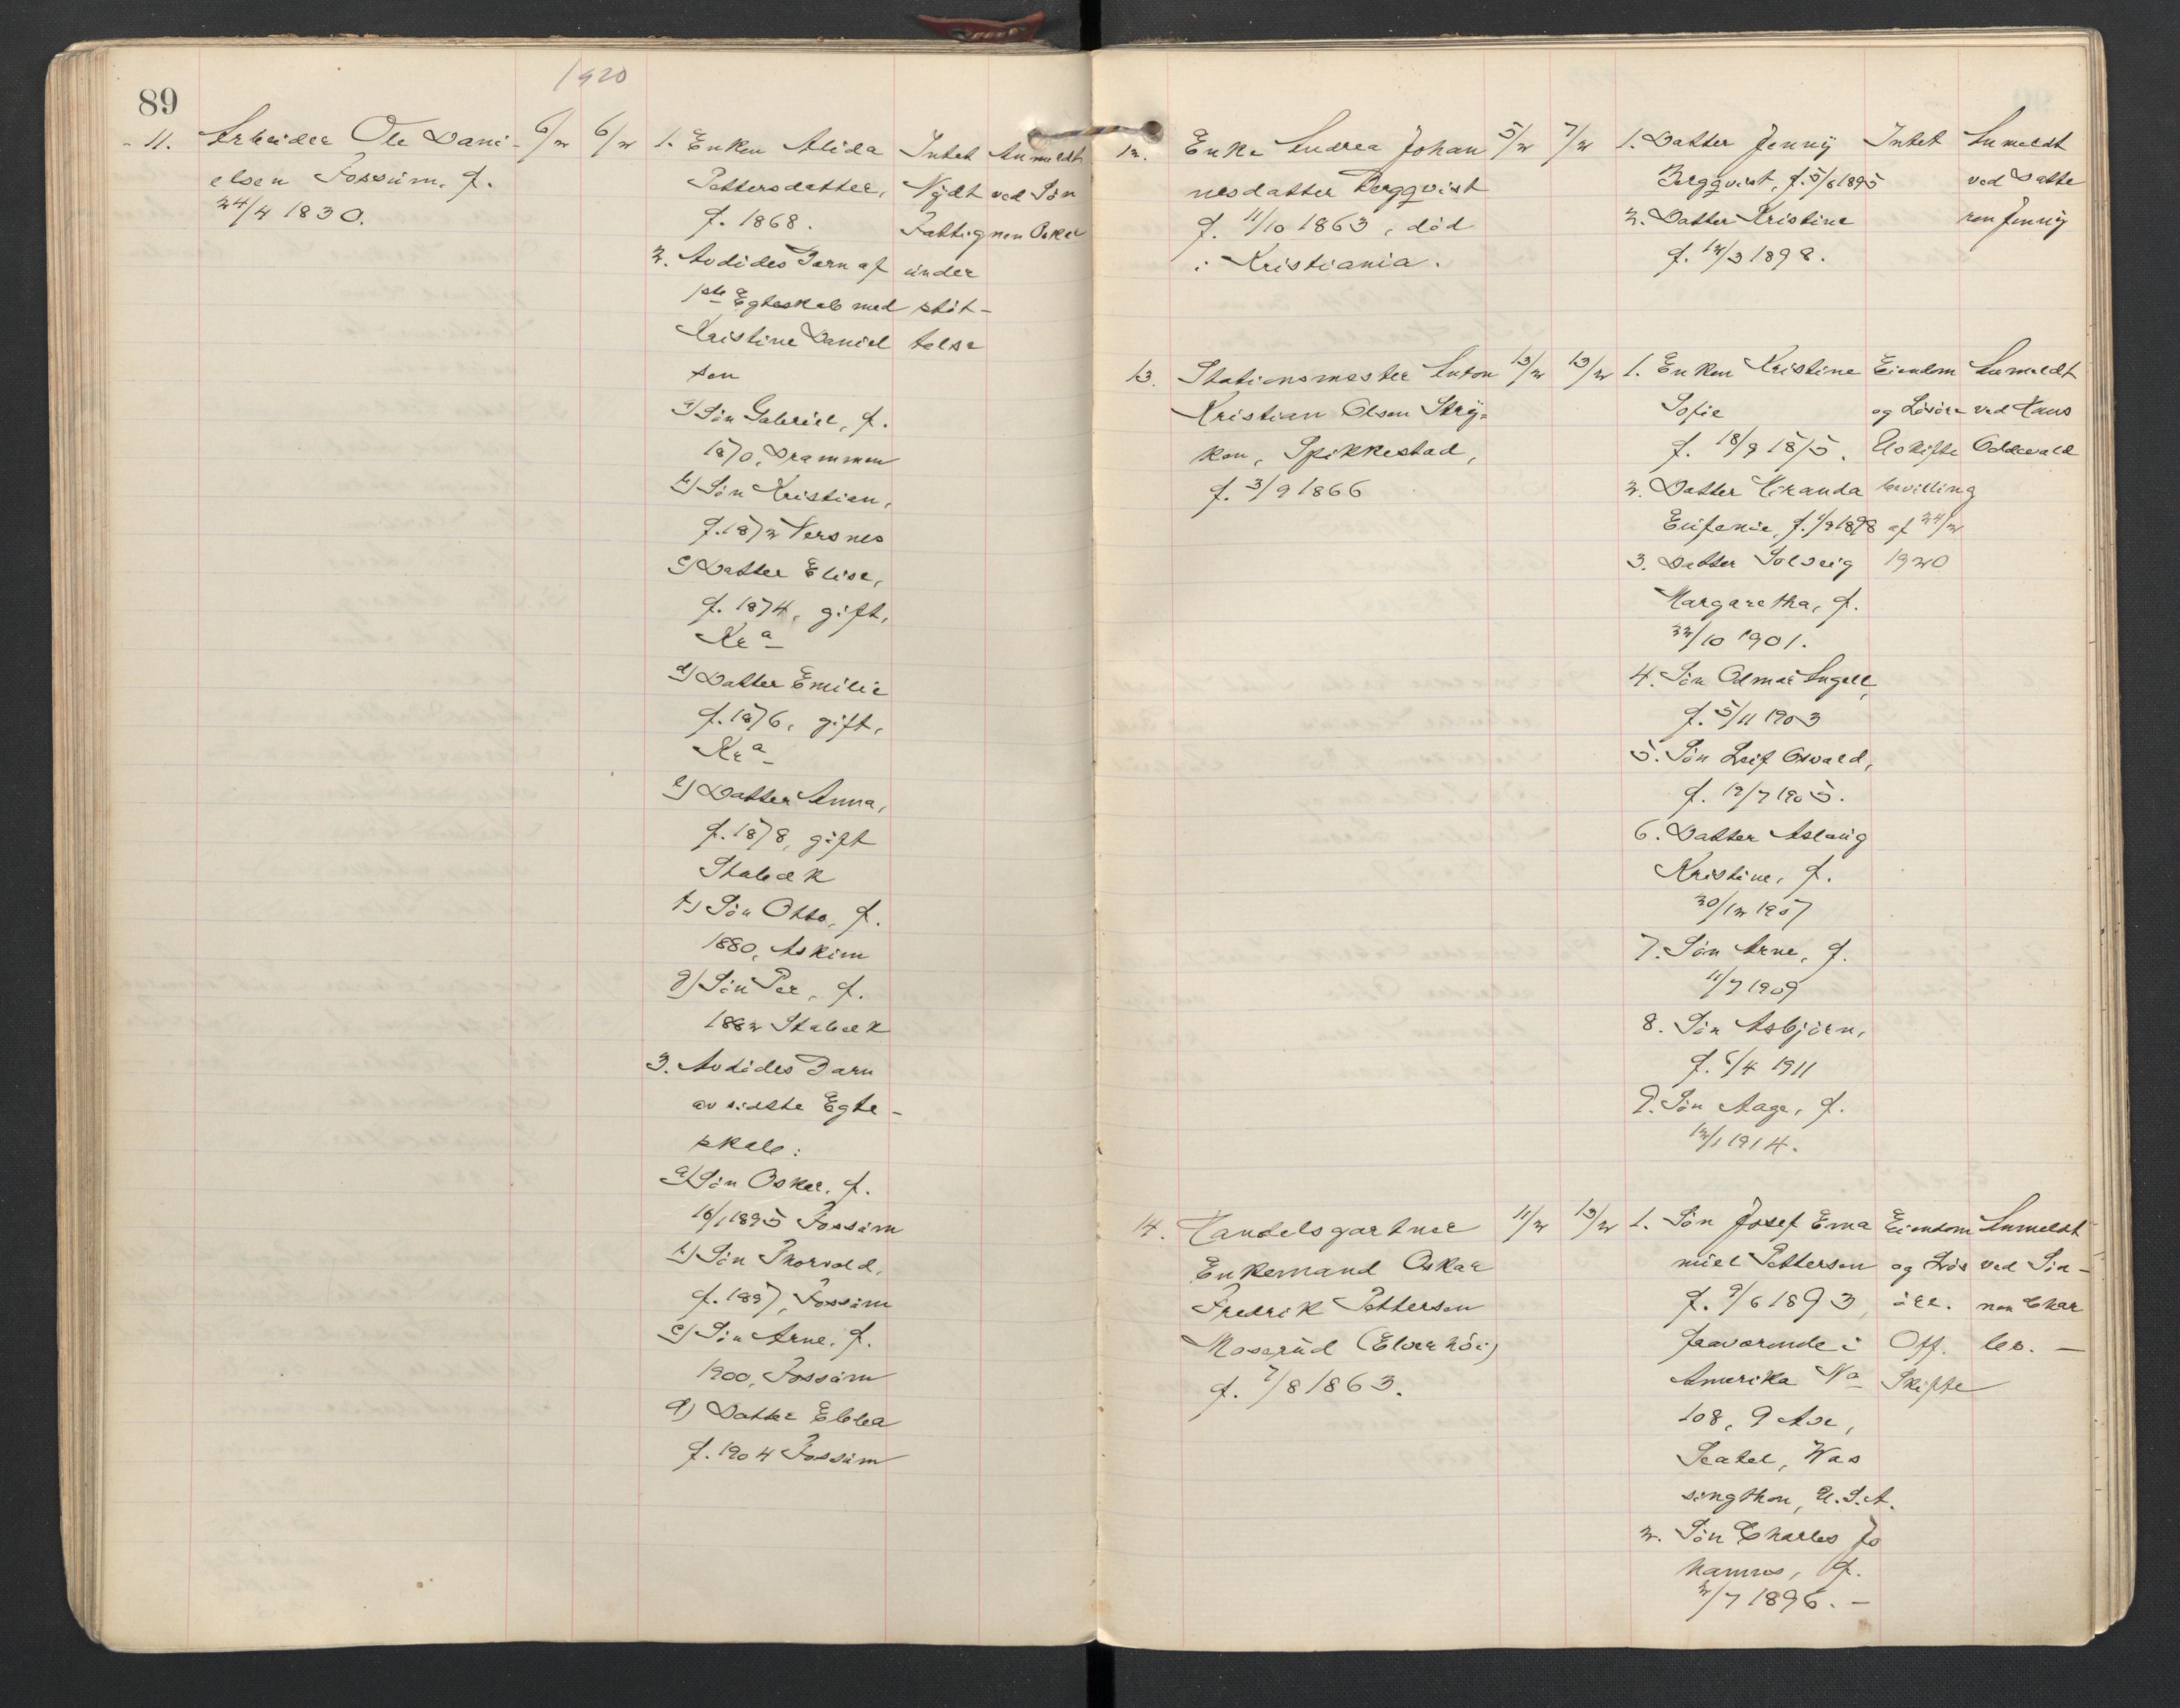 1920
89
11. Arbeider Ole Dani-
elsen Fossum, f.
24/4 1830.
6/2
6/2
1. Enken Alida
Pettersdatter,
f. 1868.
2. Avdødes Barn af
1ste Egteskab med
Kristine Daniel
sen
a) Søn Gabriel, f.
1870, Drammen
b) Søn Kristian,
f. 1872 Nersnes
c) Datter Elise,
f. 1874, gift,
Kra
d) Datter Emilie
f. 1876, gift,
Kra
e) Datter Anna,
f. 1878, gift
Stabæk
f) Søn Otto, f.
1880, Askim
g) Søn Per, f.
1882 Stabæk
3. Avdødes Barn
av sidste Egte-
skab:
a) Søn Oskar, f.
16/1 1895 Fossum
b) Søn Thorvald,
f. 1897, Fossum
c) Søn Arne, f.
1900, Fossum
d) Datter Ebba
f. 1904 Fossum
Intet
Nydt
Fattig
under
støt-
telse
Anmeldt
ved Søn
nen Oskar
12. Enke Andrea Johan
nesdatter Bergqvist
f. 11/10 1863, død
i Kristiania.
5/2
7/2
1. Datter Jenny
Bergqvist, f. 5/8 1895
2. Datter Kristine
f. 12/3 1898.
Intet
Anmeldt
ved Datte
ren Jenny
13. Stationsmester Anton
Kristian Olsen Stry-
ken, Spikkestad,
f. 3/9 1866
13/2
13/2
1. Enken Kristine
Sofie
f. 18/9 1875.
2. Datter Miranda
Eufemie, f. 1/9 1898
3. Datter Solveig
Margaretha, f.
22/10 1901.
4. Søn Odmar Ingell,
f. 5/11 1903
5. Søn Leif Osvald,
f. 19/7 1905.
6. Datter Aslaug
Kristine, f.
20/12 1907
7. Søn Arne, f.
11/7 1909
8. Søn Asbjørn,
f. 6/4 1911
9. Søn Aage, f.
12/1 1914.
Eiendom
og Løsøre
Uskifte
bevilling
af 24/2
1920
Anmeldt
ved Hans
Oddevald
14. Handelsgartner
Enkemand Oskar
Fredrik Pettersen
Moserud (Elverhøi)
f. 7/8 1863.
11/2
13/2
1. Søn Josef Ema
nuel Pettersen
f. 9/6 1893,
fraværende i
Amerika Na
108, 9 Ave,
Seatel, Was
singthon, U.S.A.
2. Søn Charles Jo
hannes, f.
2/7 1896. -
Eiendom
og Løs
øre.
Off.
Skifte
Anmeldt
ved Søn-
nen Char
les. -